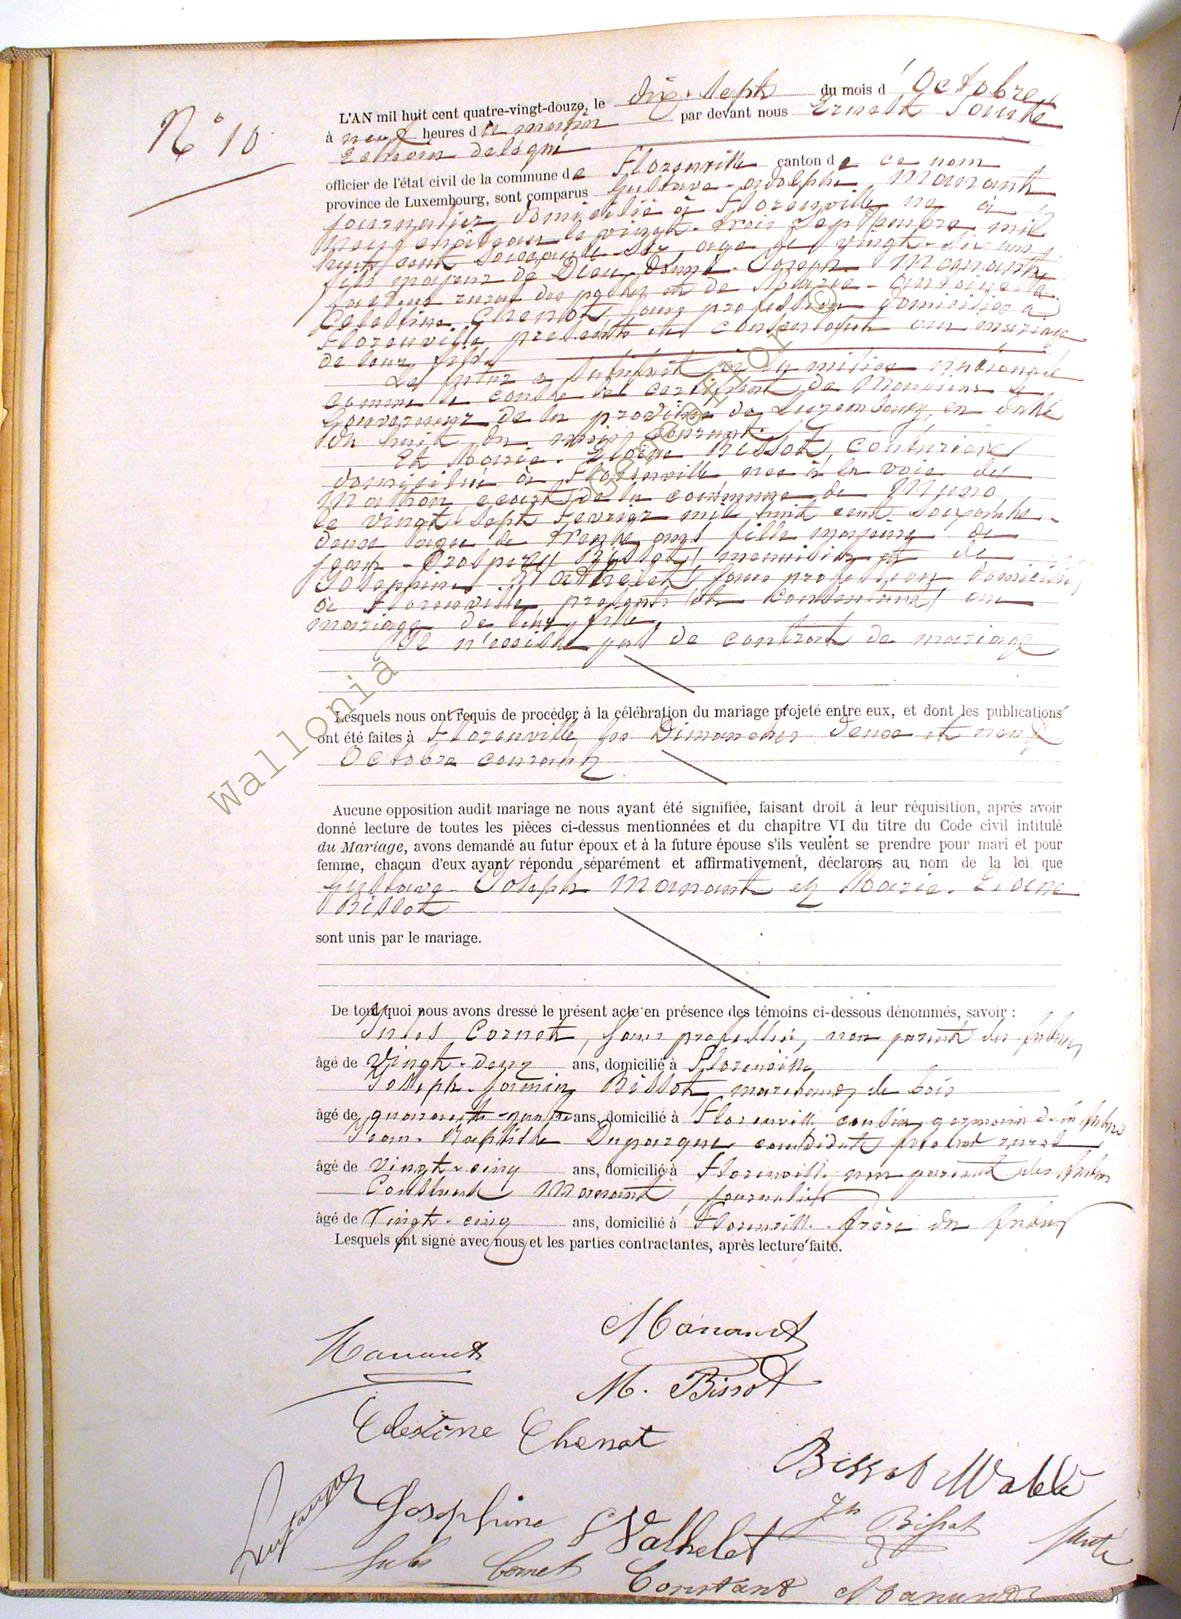 N° 10
L'AN mil huit cent quatre-vingt-douze, le dix-sept du mois d'Octobre
à neuf heures du matin par devant nous Ernest
Echevin délégué
officier de l'état civil de la commune de Florenville canton de ce nom
province de Luxembourg, sont comparus Gustave-Adolphe Manant
journalier, domicilié à Florenville né à
Neufchâteau le vingt-trois Septembre mil
huit cent soixante-six âgé de vingt-six ans
fils majeur de Dieu-Donné-Joseph Manant
facteur rural des postes et de Marie-Antoinette
Célestine Chenot, sans profession domiciliés à
Florenville, présents et consentant au mariage
de leur fils.
Le futur a satisfait à la milice nationale
comme le conste le certificat de Monsieur le
Gouverneur de la province de Luxembourg, en date
du huit du mois courant.
Et Marie-Bissot, couturière
domiciliée à Florenville née à la voie de
Mathon, écart de la commune de Muno
le vingt sept Février mil huit cent soixante-
deux âgée de trente ans fille majeure de
Jean-Prosper Bissot, menuisier et de
Joséphine Wathelet, sans profession domiciliés
à Florenville, présents et consentant au
mariage de leur fille.
Il n'existe pas de contrat de mariage
Lesquels nous ont requis de procéder à la célébration du mariage projeté entre eux, et dont les publications
ont été faites à Florenville, les Dimanches deux et neuf
Octobre courant
Aucune opposition audit mariage ne nous ayant été signifiée, faisant droit à leur réquisition, après avoir
donné lecture de toutes les pièces ci-dessus mentionnées et du chapitre VI du titre du Code civil intitulé
du Mariage, avons demandé au futur époux et à la future épouse s'ils veulent se prendre pour mari et pour
femme, chacun d'eux ayant répondu séparément et affirmativement, déclarons au nom de la loi que
Gustave-Joseph Manant et Marie-
Bissot
sont unis par le mariage.
De tout quoi nous avons dressé le présent acte en présence des témoins ci-dessous dénommés, savoir :
Jules Cornet, sans profession, non parent des futurs
âgé de Vingt-deux ans, domicilié à Florenville
Joseph Firmin Bissot marchand de bois
âgé de quarante-quatre ans, domicilié à Florenville cousin germain de la future
Jean-Baptiste Duparque candidat facteur rural
âgé de vingt-cinq ans, domicilié à Florenville non parent des futurs
Constant Manant journalier
âgé de Vingt-cinq ans, domicilié à Florenville frère du futur
Lesquels ont signé avec nous et les parties contractantes, après lecture faite.
Manant
Manant
M. Bissot
Célestine Chenot
Bissot
Joséphine Wathelet
Bissot
Jules Cornet
Constant Manant
Wallonia